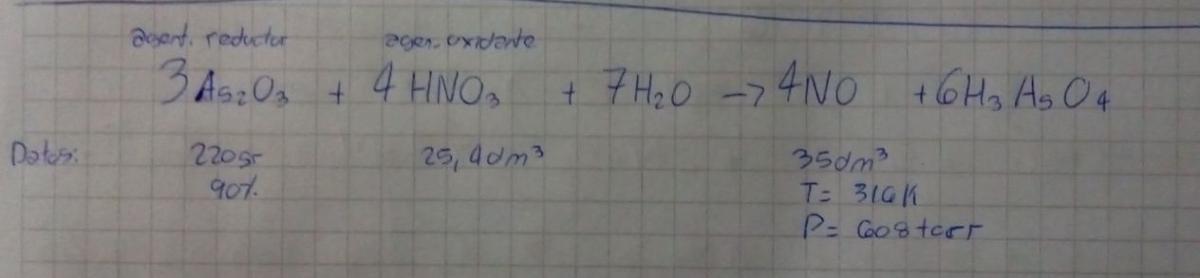 agent. reductor agen. oxidante
3As₂O₃ + 4HNO₃ + 7H₂O → 4NO + 6H₃AsO₄
Datos: 220gr 25,4dm³ 35dm³
90% T= 316K
P= 608torr